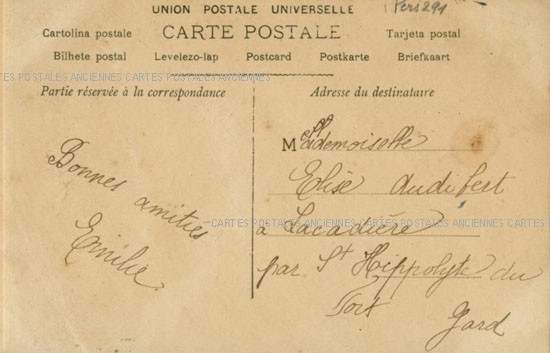 Pers 291
UNION POSTALE UNIVERSELLE
CARTE POSTALE
Cartolina postale
Tarjeta postal
Bilhete postal Levelezo-lap Postcard Postkarte Briefkaart
CARTES POSTALES ANCIENNES CARTES POSTALES ANCIENNES
Partie réservée à la correspondance
Adresse du destinataire
Bonnes
amitiés
Emilie
Mademoiselle
Elise Audifert
CARTES POSTALES ANCIENNES CARTES POSTALES ANCIENNES CARTES
à Lacadière
par St Hippolyte du
Fort
Gard